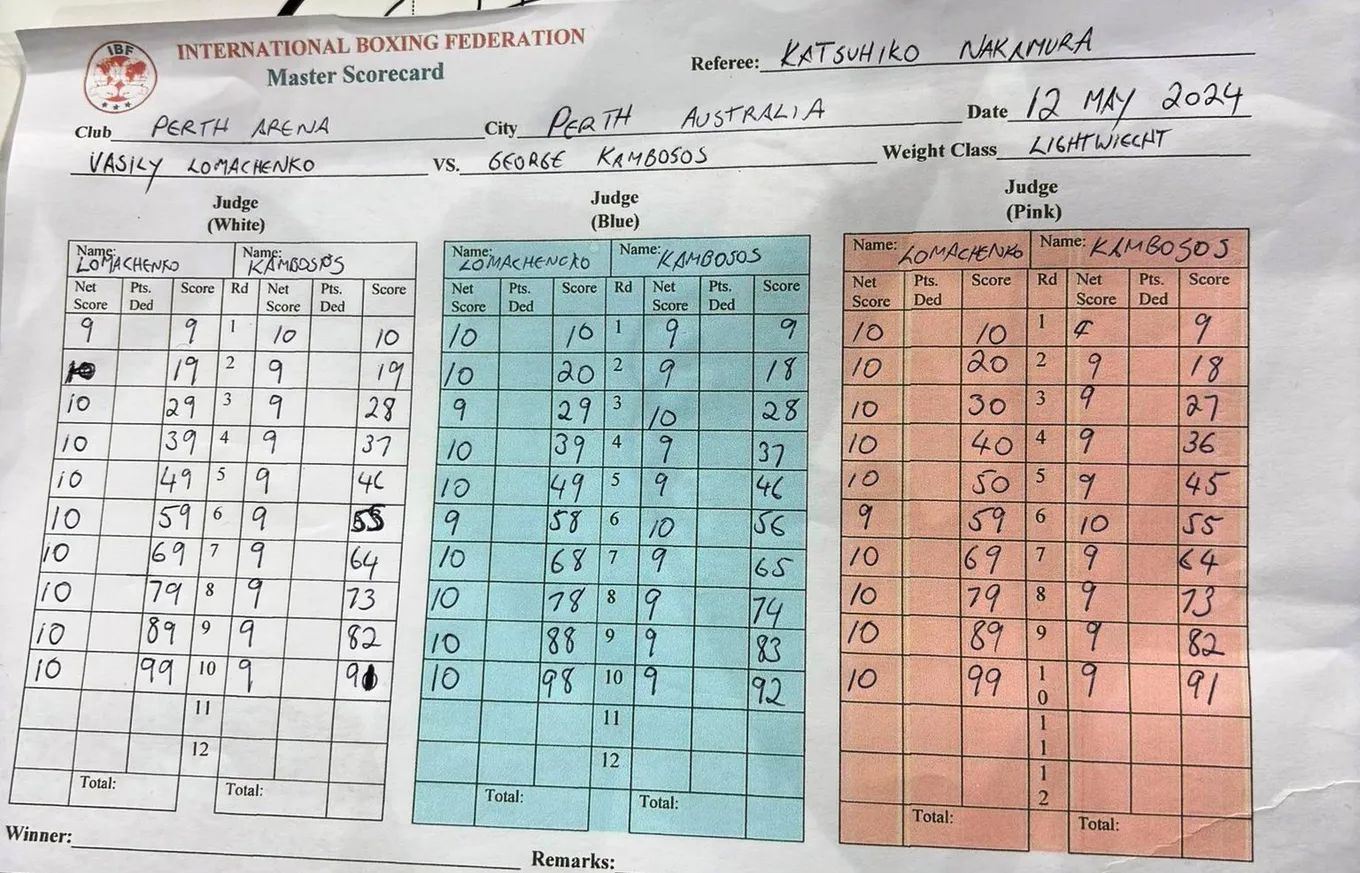 IBF
INTERNATIONAL BOXING FEDERATION
Master Scorecard
Referee: KATSUHIKO NAKAMURA
Club PERTH ARENA City PERTH AUSTRALIA Date 12 MAY 2024
VASILY LOMACHENKO VS. GEORGE KAMBOSOS Weight Class LIGHTWIECHT
Judge Judge Judge
(White) (Blue) (Pink)
Name: LOMACHENKO Name: KAMBOSOS Name: LOMACHENCKO Name: KAMBOSOS Name: LOMACHENKO Name: KAMBOSOS
Net Score Pts. Ded Score Rd Net Score Pts. Ded Score Net Score Pts. Ded Score Rd Net Score Pts. Ded Score Net Score Pts. Ded Score Rd Net Score Pts. Ded Score
9 9 1 10 10 10 10 1 9 9 10 10 1 9
10 19 2 9 19 10 20 2 9 18 10 20 2 9 18
10 29 3 9 28 9 29 3 10 28 10 30 3 9 27
10 39 4 9 37 10 39 4 9 37 10 40 4 9 36
10 49 5 9 46 10 49 5 9 46 10 50 5 9 45
10 59 6 9 55 9 58 6 10 56 9 59 6 10 55
10 69 7 9 64 10 68 7 9 65 10 69 7 9 64
10 79 8 9 73 10 78 8 9 74 10 79 8 9 73
10 89 9 9 82 10 88 9 9 83 10 89 9 9 82
10 99 10 9 91 10 98 10 9 92 10 99 10 9 91
11 11 11
12 12 12
Total: Total: Total: Total: Total: Total:
Winner: Remarks: